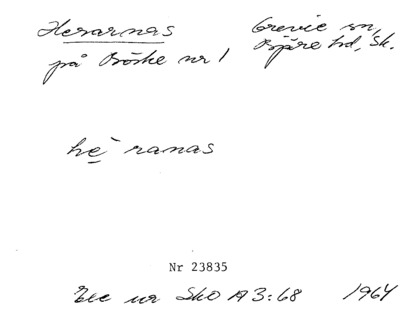 Herarnas Grevie sn,
på Böske nr 1 Bjäre hd, Sk.
hè ranas
Nr 23835
Exc ur SkO A3:68 1964